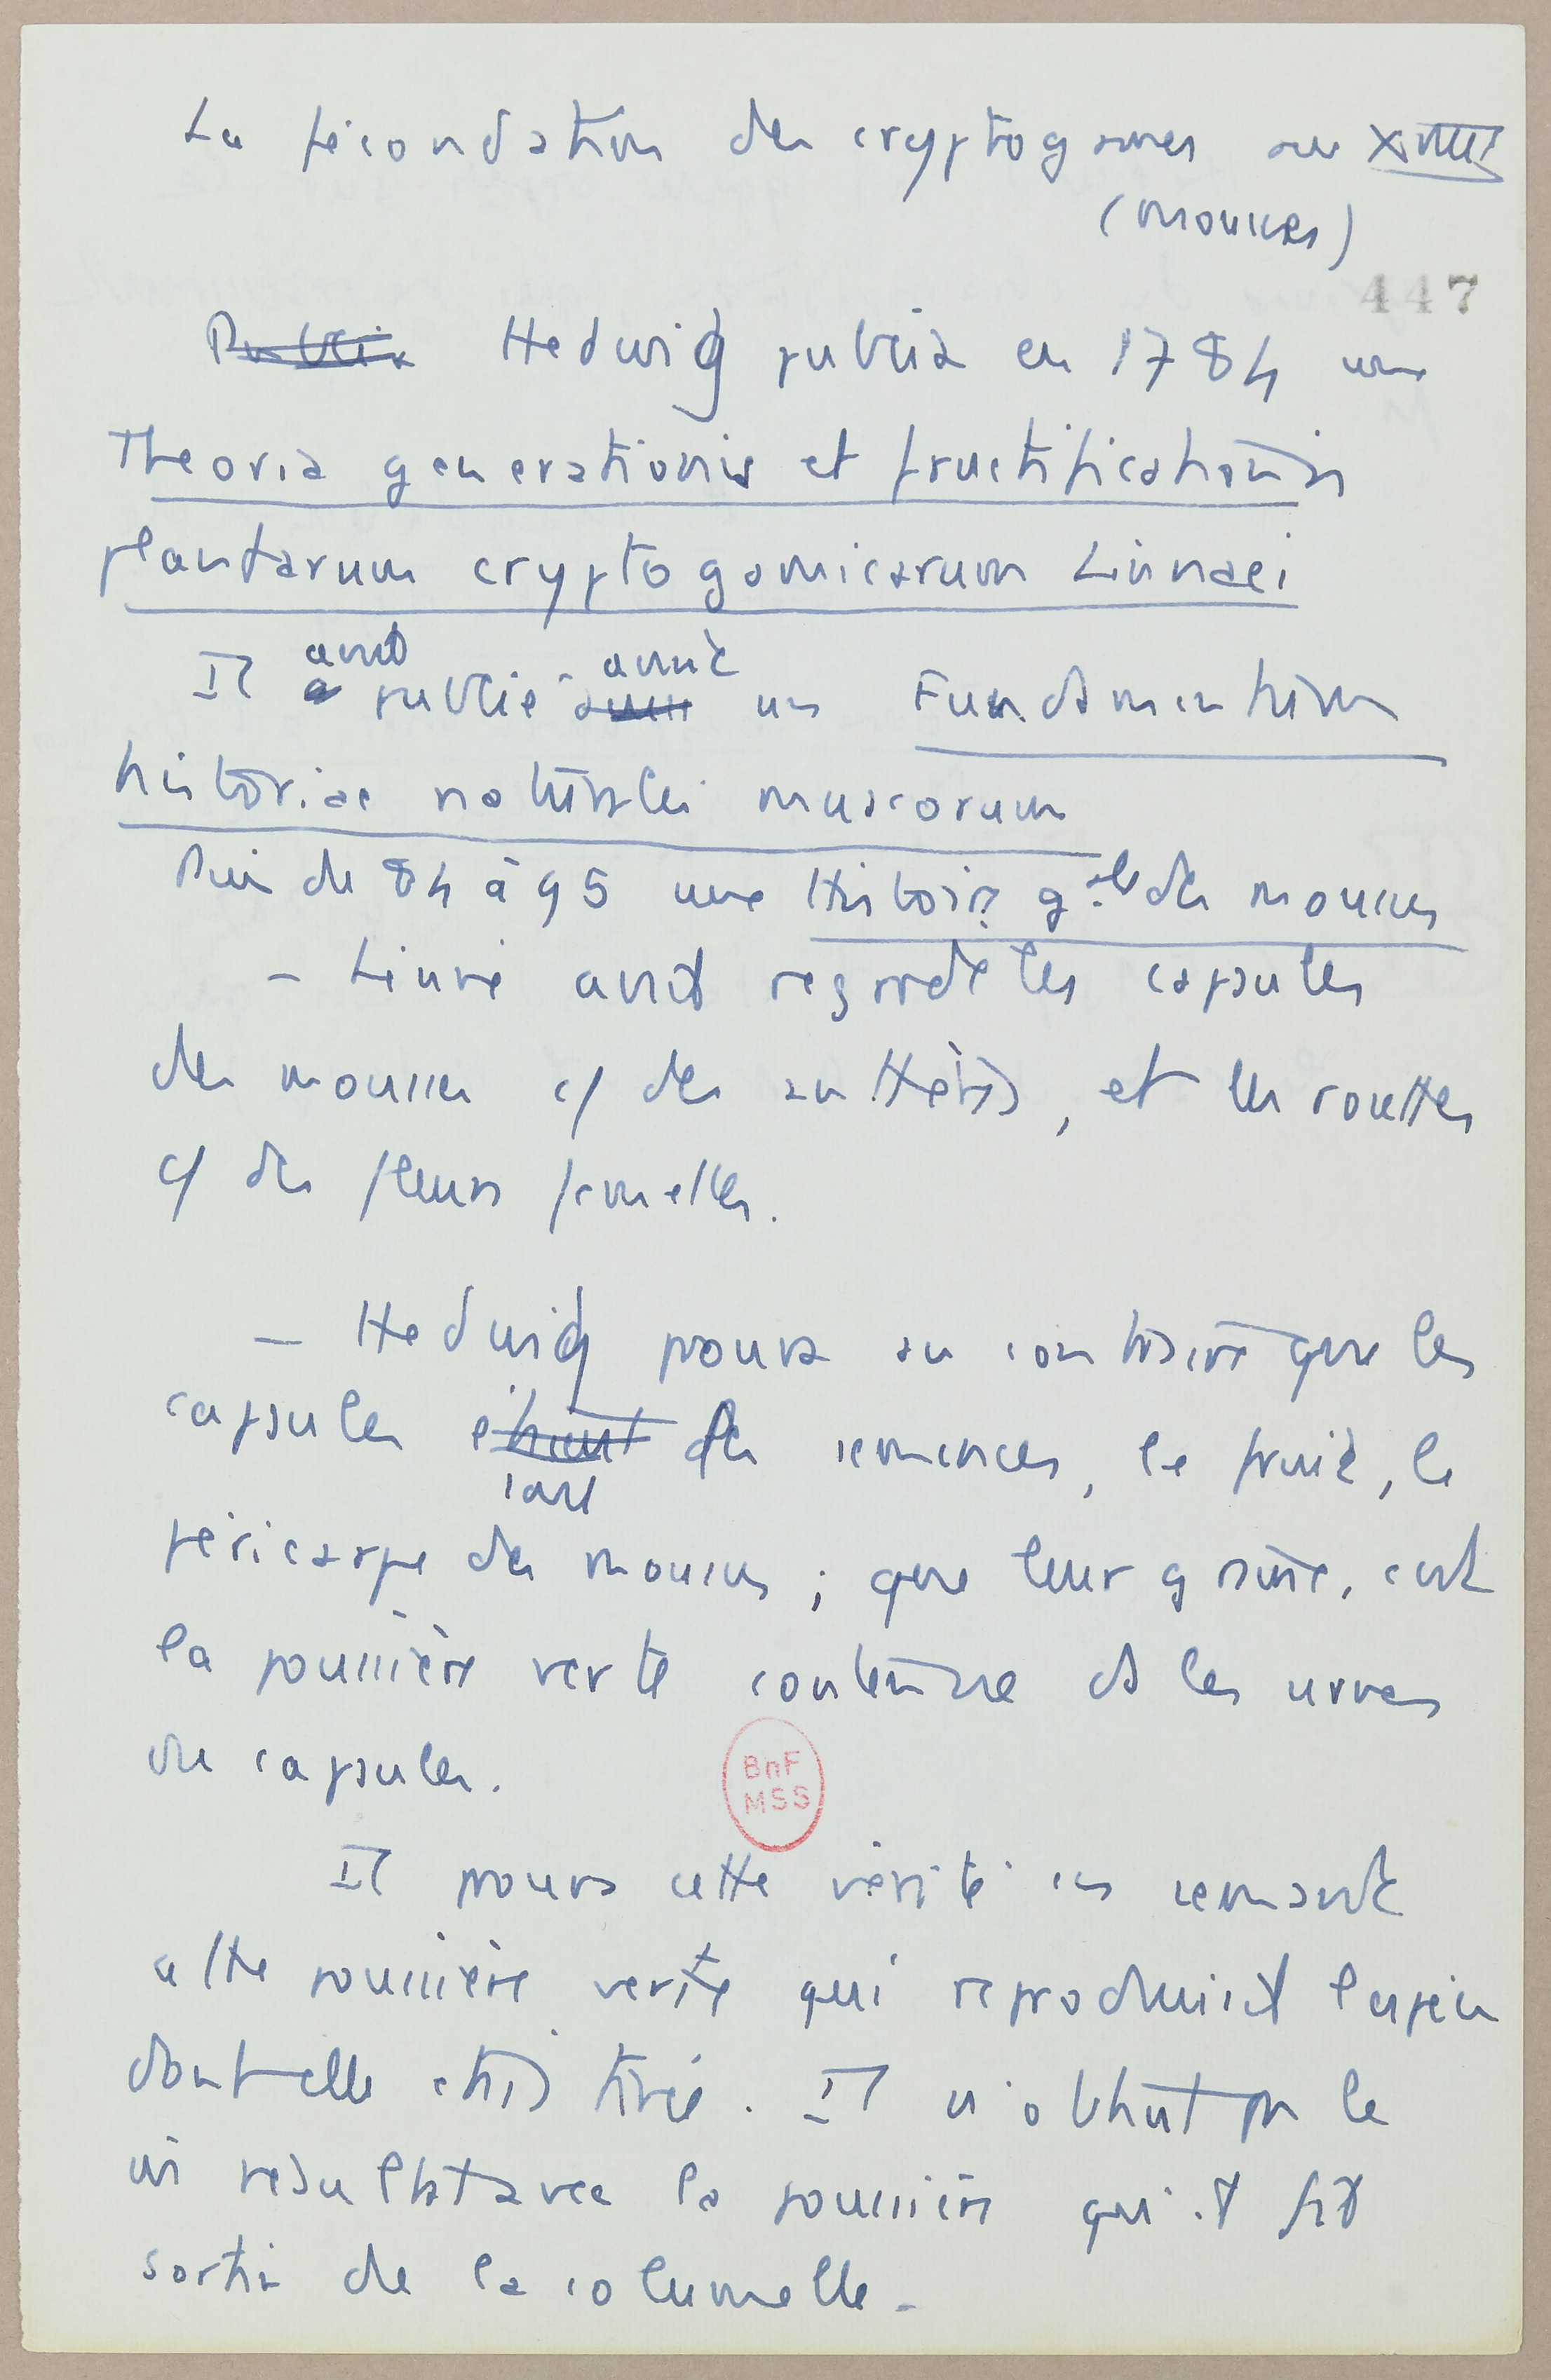 La fécondation des cryptogames au XVIII
(mousses)
447
Publia Hedwig publia en 1784 une
Theoria generationis et fructificationis
plantarum cryptogamicarum Linnaei
avait avant
Il a publié un Fundamentum
historiae naturalis muscorum
Puis de 84 à 95 une Histoire gale des mousses
- Linné avait regardé les capsules
des mousses c/ des anthères, et les rosettes
c/ des fleurs femelles.
- Hedwig prouva au contraire que les
capsules étaient les semences, le fruit, le
sont
péricarpe des mousses ; que leur graine, c'est
la poussière verte contenue ds les urnes
ou capsules.
BnF
MSS
Il prouva cette vérité en semant
cette poussière verte qui reproduisit l'espèce
dont elle était tirée. Il n'obtint pas le
m résultat avec la poussière qu'il fit
sortir de la columelle.